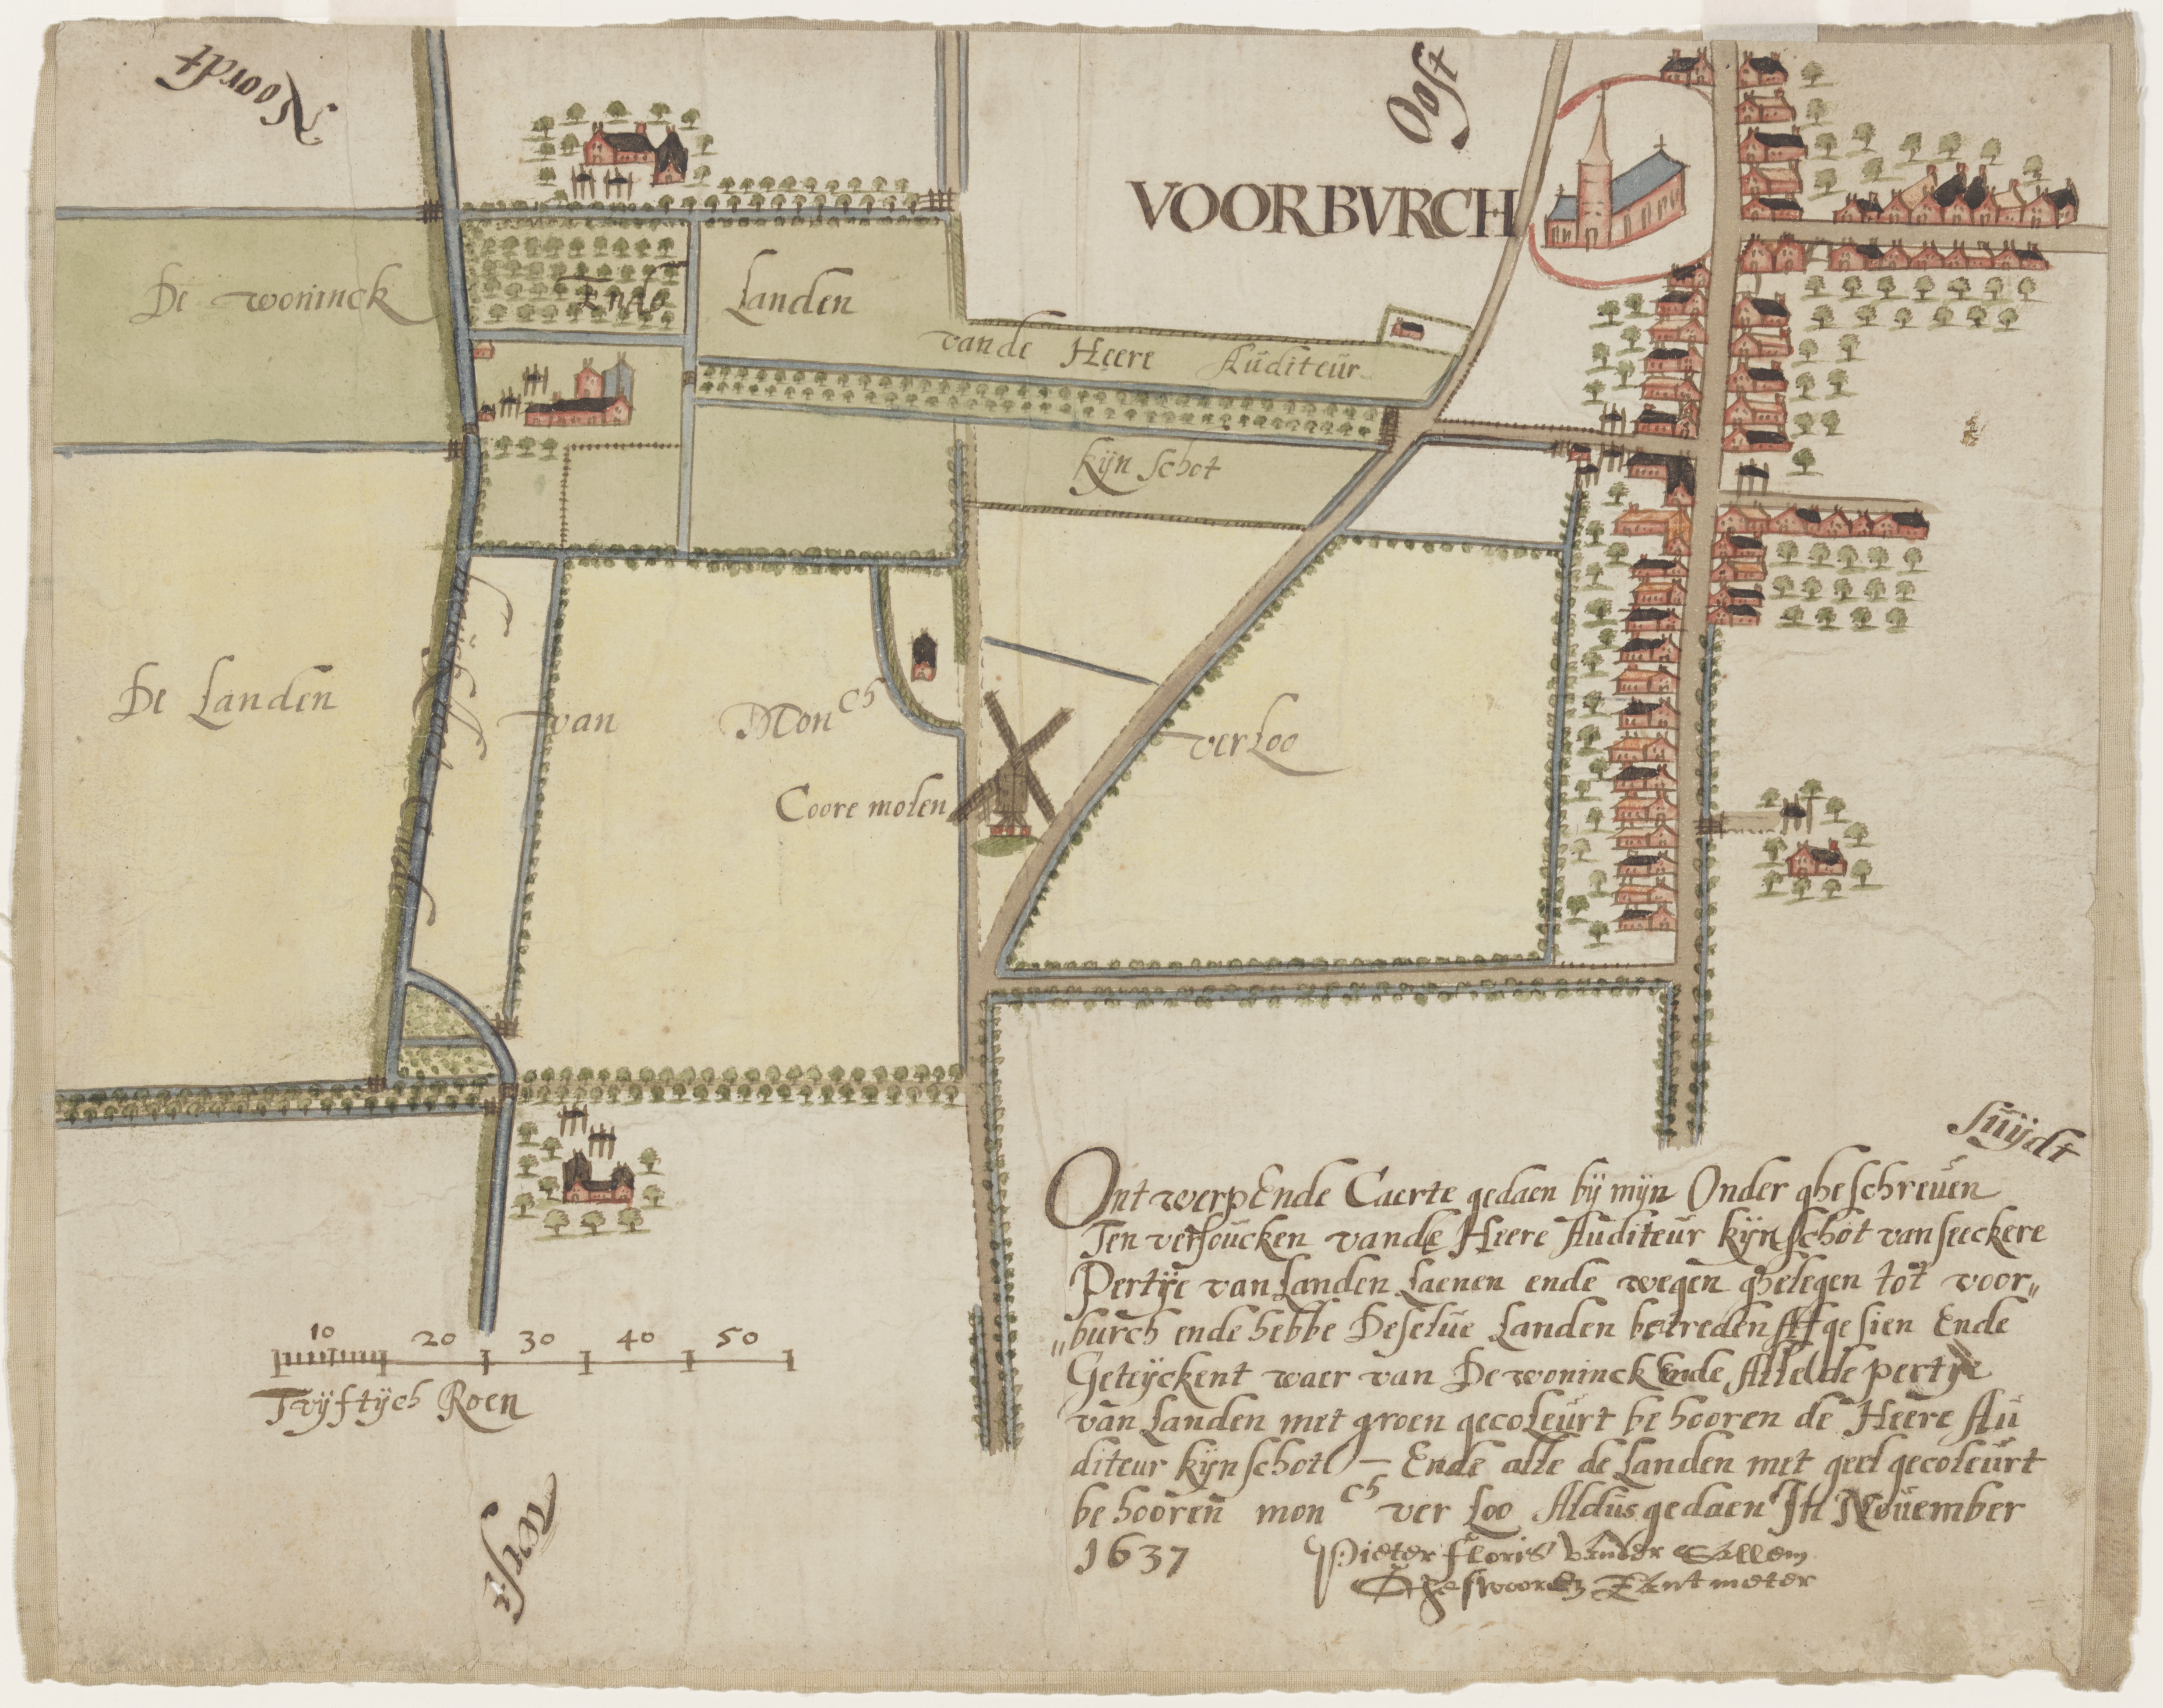 Noordt
Oost
VOORBVRCH
De woninck Ende Landen
vande Heere Auditeur
kijn schot
De Landen van Mon ch verLoo
Coore molen
suijdt
Ontwerp Ende Caerte gedaen bij mijn Onder gheschreuen
Ten versoucken vande Heere Auditeur kijnschot van seeckere
Pertije van Landen Laenen ende wegen ghelegen tot voor„
„burch ende hebbe Deselue Landen betreden Affgesien Ende
Geteijckent waer van De woninck Ende Alle de pertije
van Landen met groen gecoleurt behooren de Heere Au
diteur kijnschott — Ende alle de Landen met geel gecoleurt
behooren mon ch ver Loo Aldus gedaen In Nouember
1637
Pieter Floris vander
Ghesworen Lantmeter
10 20 30 40 50
Vijftijch Roen
West